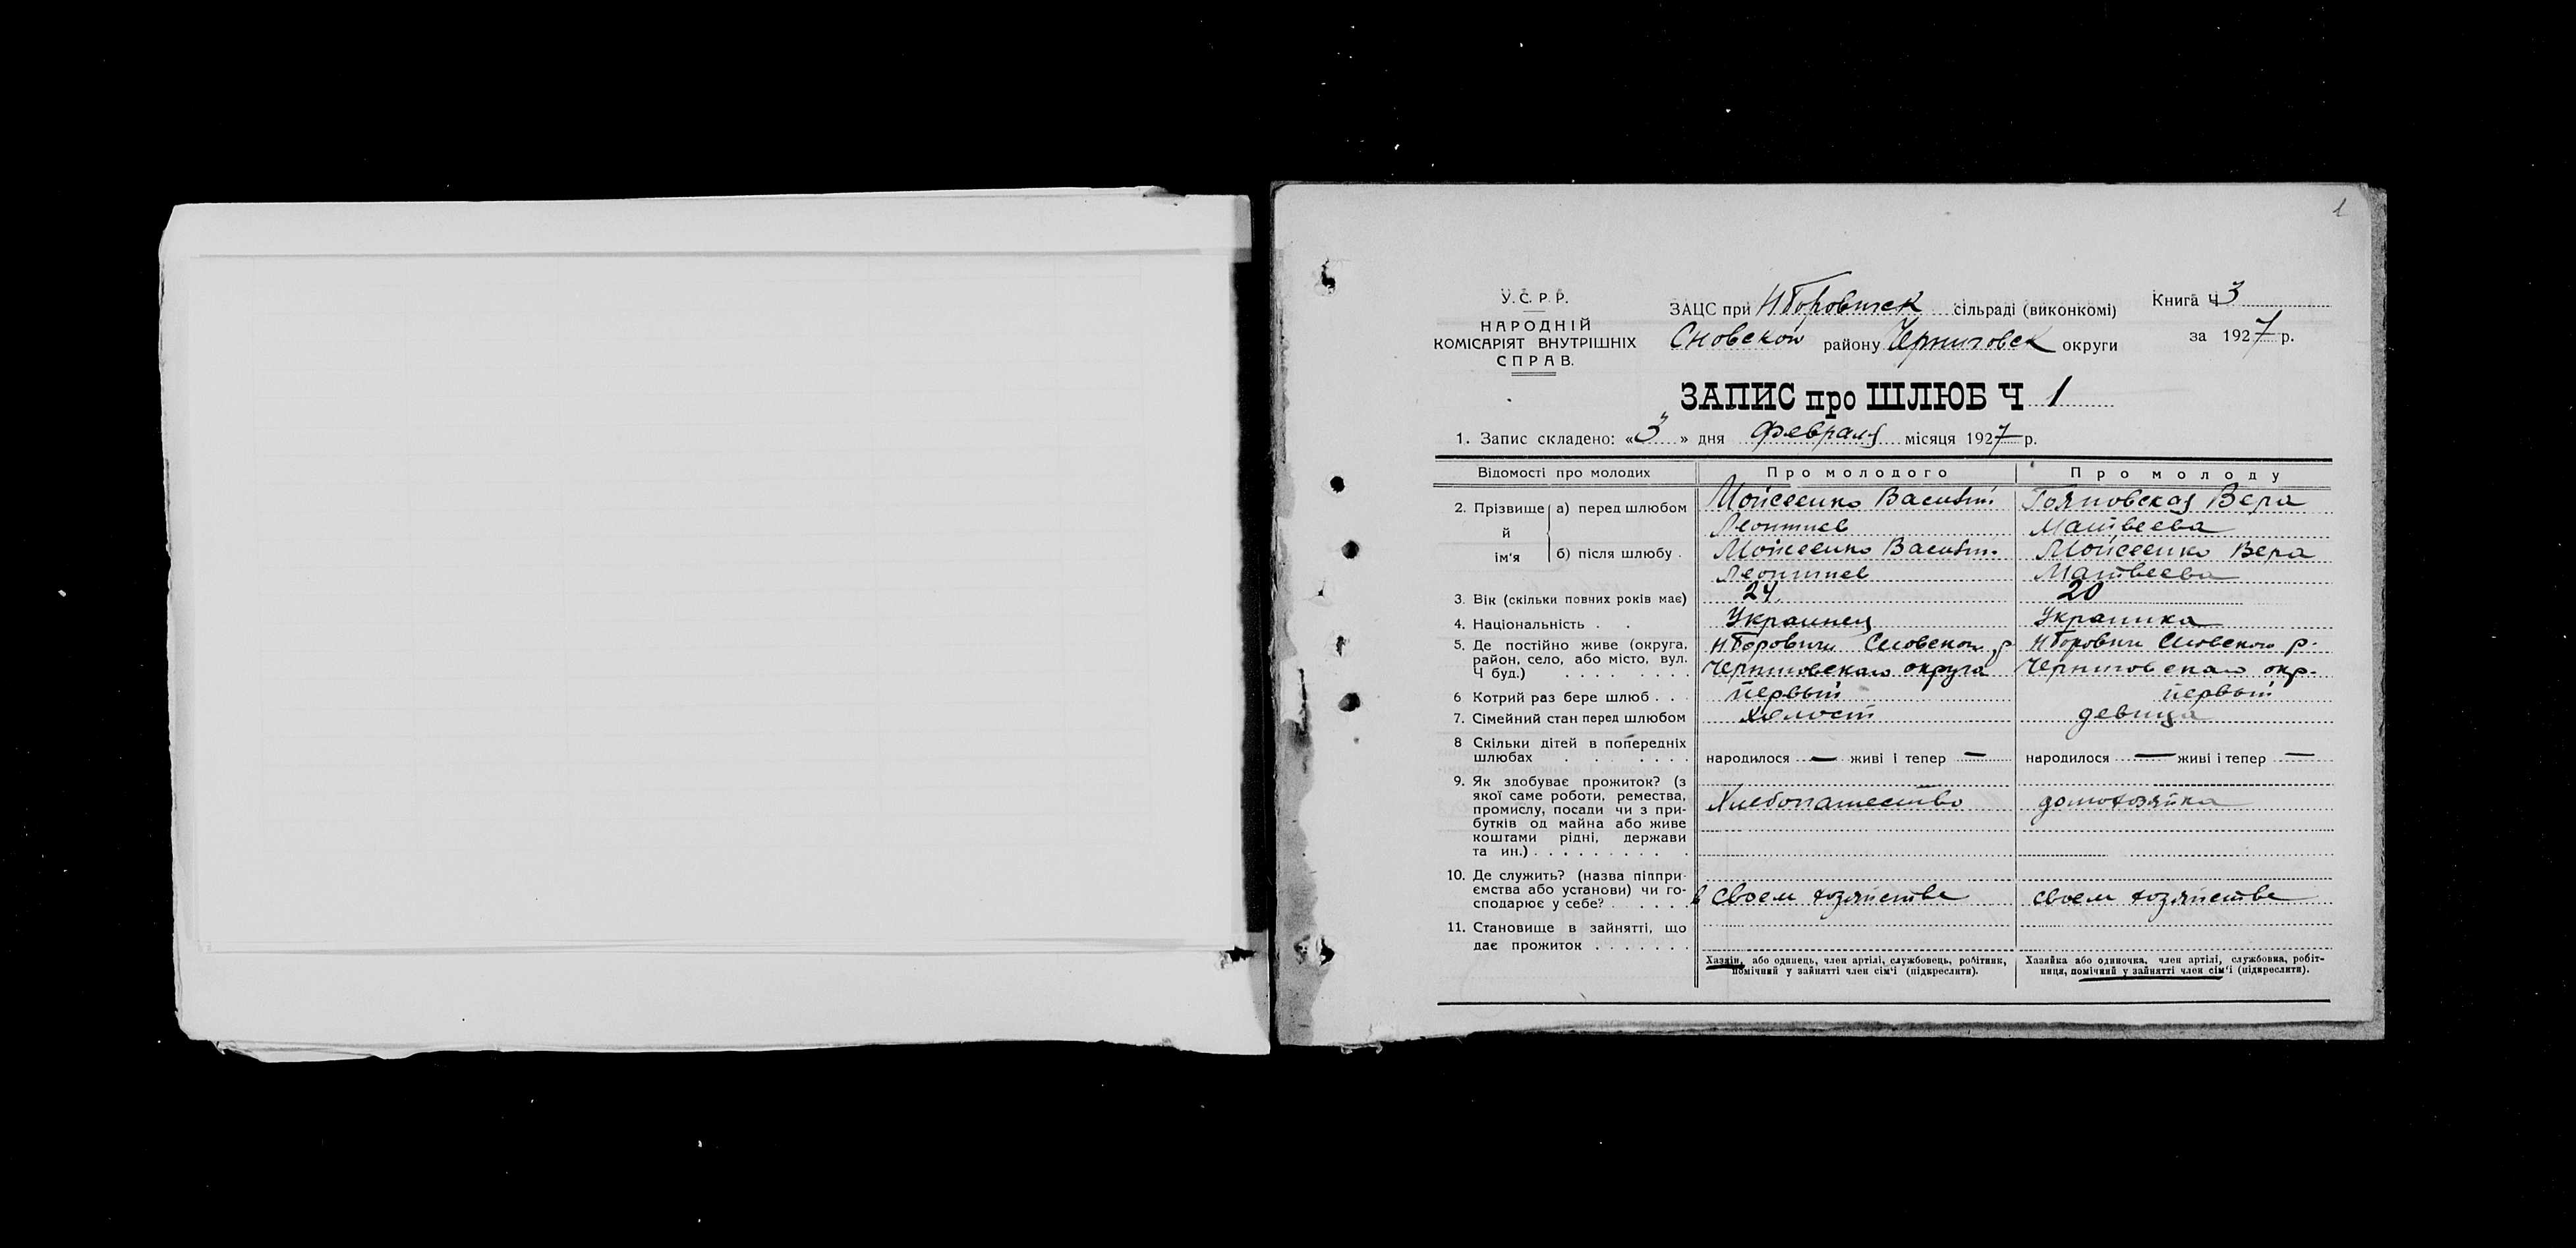 1
У.С.Р.Р.
НАРОДНІЙ
КОМІСАРІЯТ ВНУТРІШНІХ
СПРАВ.
ЗАЦС при Н Боровичск сільраді (виконкомі)
Сновской району Черниговск округи
Книга Ч 3
за 1927 р.
ЗАПИС про ШЛЮБ Ч 1
1. Запис складено: «3» дня февраля місяця 1927 р.
Відомості про молодих Про молодого Про молоду
2. Прізвище й ім'я а) перед шлюбом Мойсеенко Василий Вера
Леонтиев Матвеева
б) після шлюбу . Мойсеенко Василий Мойсеенко Вера
Леонтиев Матвеева
3. Вік (скільки повних років має) 24. 20
4. Національність . . Украинец Украинка
5. Де постійно живе (округа, район, село, або місто, вул. Ч буд.) . . . . . . . .
Н Боровичи Сновского р Н Боровичи Сновского р.
Черниговскаго округа Черниговскаго окр.
6 Котрий раз бере шлюб . . . первый первый
7. Сімейний стан перед шлюбом холост девица
8 Скільки дітей в попередніх шлюбах . . . . . .
народилося — живі і тепер — народилося — живі і тепер —
9. Як здобуває прожиток? (з
якої саме роботи, ремества,
промислу, посади чи з при-
бутків од майна або живе
коштами рідні, держави
та ин.) . . . . . . . . . .
Хлебопашество домохозяйка
10. Де служить? (назва підпри-
ємства або установи) чи го-
сподарює у себе? . . . . .
в своем хозяйстве своем хозяйстве
11. Становище в зайнятті, що
дає прожиток . . . . . . .
Хазяїн, або одинець, член артілі, службовець, робітник,
помічний у зайнятті член сім'ї (підкреслити).
Хазяйка або одиночка, член артілі, службовка, робіт-
ниця, помічний у зайнятті член сім'ї (підкреслити).